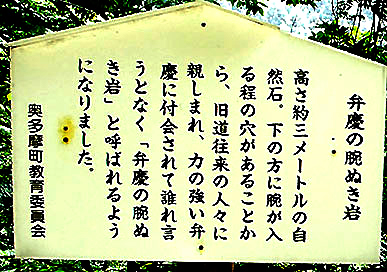 弁慶の腕ぬき岩
高さ約三メートルの自
然石。下の方に腕が入
る程の穴があることか
ら、旧道往来の人々に
親しまれ、力の強い弁
慶に付会されて誰れ言
うとなく「弁慶の腕ぬ
き岩」と呼ばれるよう
になりました。
奥多摩町教育委員会